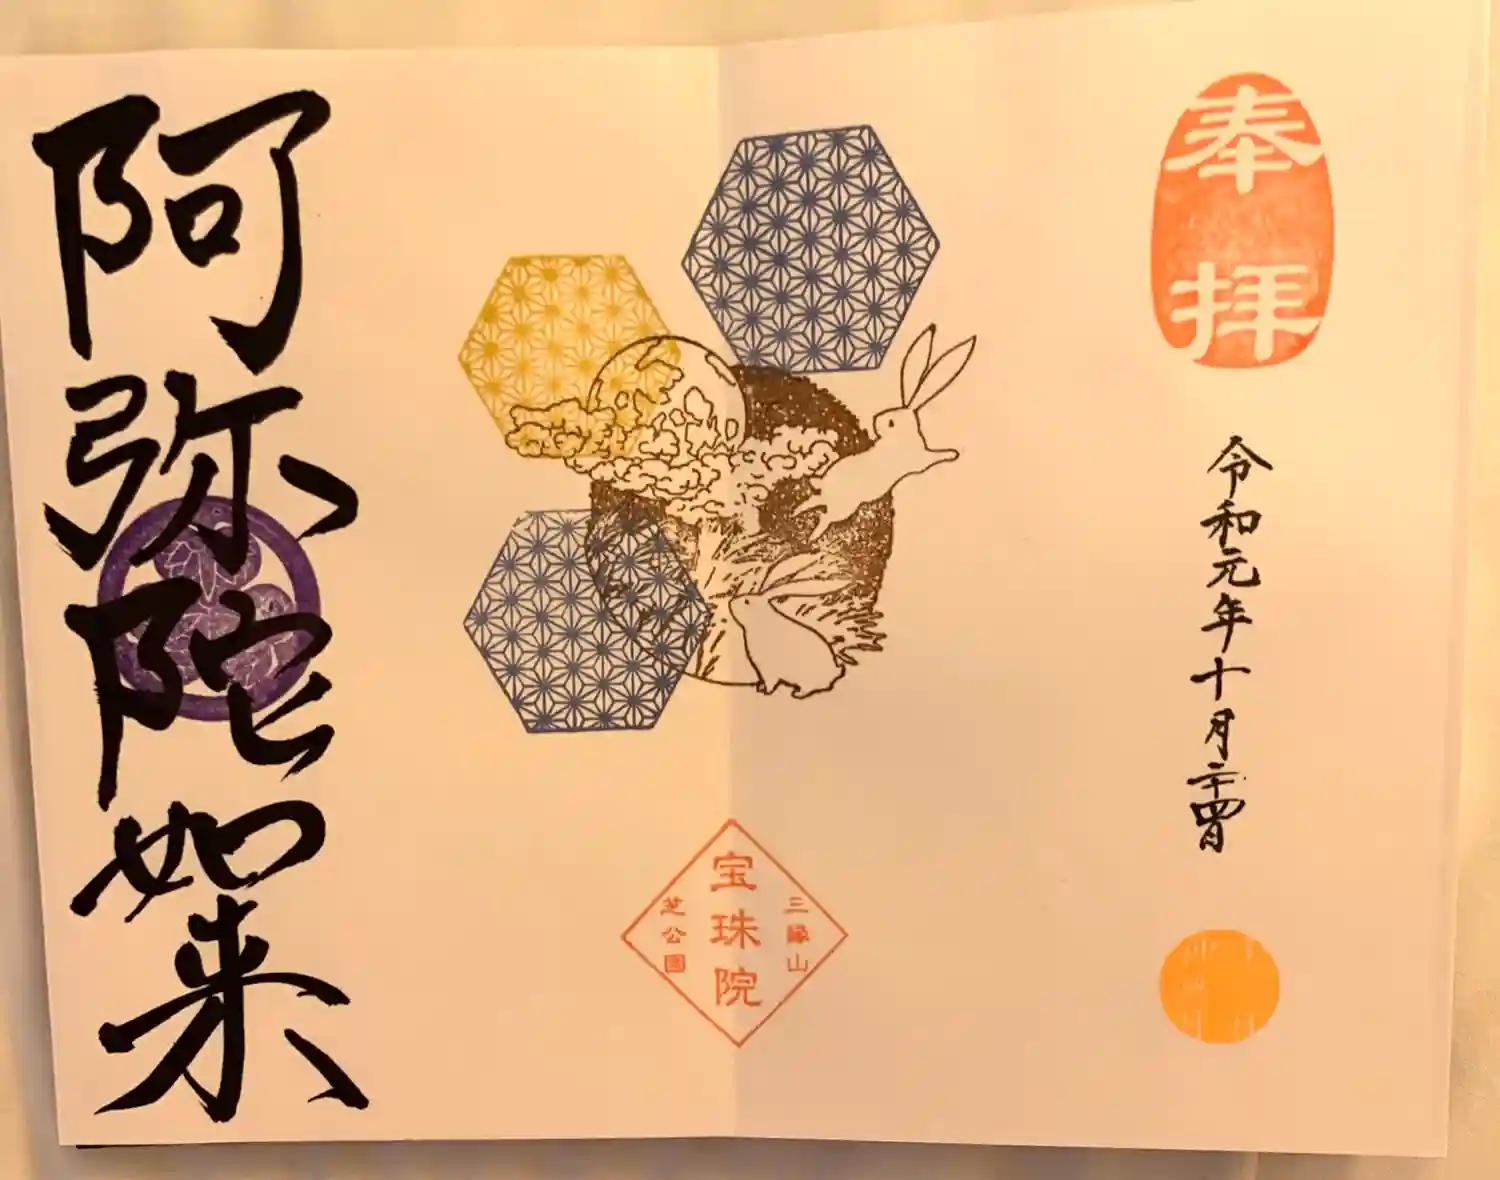 奉拝
令和元年十月二十四日
三縁山
宝珠院
芝公園
阿弥陀如来